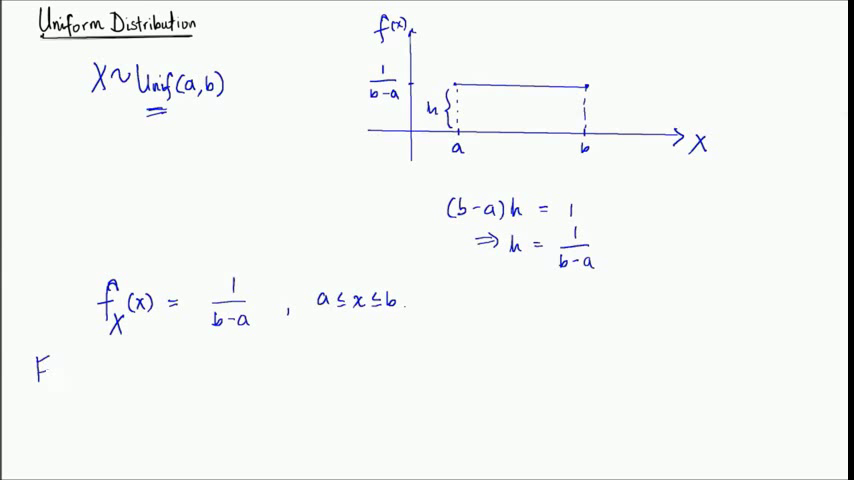 Uniform Distribution
X ~ Unif(a,b)
f(x)
1/(b-a)
h {
a b X
(b-a)h = 1
⇒ h = 1/(b-a)
f_X(x) = 1/(b-a) , a ≤ x ≤ b.
F